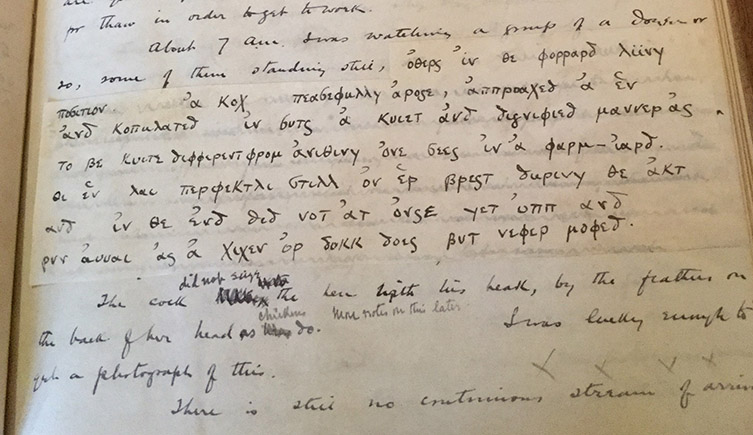 thaw in order to get to work.
About 7 am. I was watching a group of a dozen or
so, some of them standing still, ὀθερς ἰν θε φορραρδ λιινγ
ποσιτιον. ἀ κοχ πεασεφυλλυ ἀροσε, ἀππροαχεδ ἀ ἑν
ἀνδ κοπυλατεδ ἰν συτς ἀ κυιετ ἀνδ διγνιφιεδ μαννερ ἀς
το βε κυιτε διφφερεντ φρομ ἀνιθινγ ὀνε σεες ἰν ἀ φαρμ–ἰαρδ.
θι ἑν λαι περφεκτλι στιλλ ὀν ἑρ βρεστ δυρινγ θε ἀκτ
ανδ ἰν θε ἐνδ διδ νοτ ἀτ ὀνσε γετ ὐππ ανδ
ρυν ἀυυαι ἀς ἀ χιχεν ὀρ δοκκ δοες βυτ νεφερ μοφεδ.
did not seize
The cock the hen with his beak, by the feathers on
chickens More notes on this later
the back of her head as do. I was lucky enough to
get a photograph of this.
There is still no continuous stream of